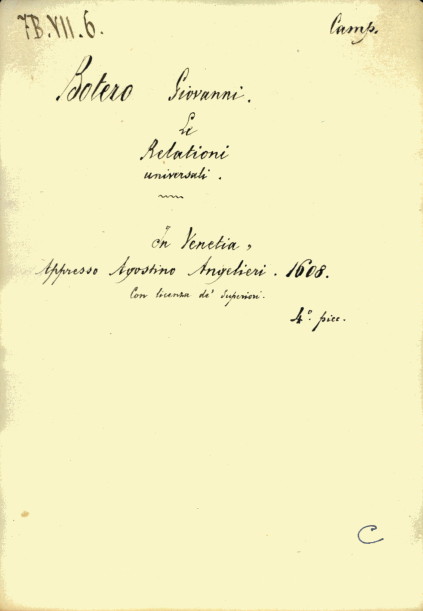 7B.VII.6.
Camp.
Botero Giovanni.
Le
Relationi
universali.
In Venetia,
Appresso Agostino Angelieri. 1608.
Con licenza de' Superiori.
4º. picc.
C